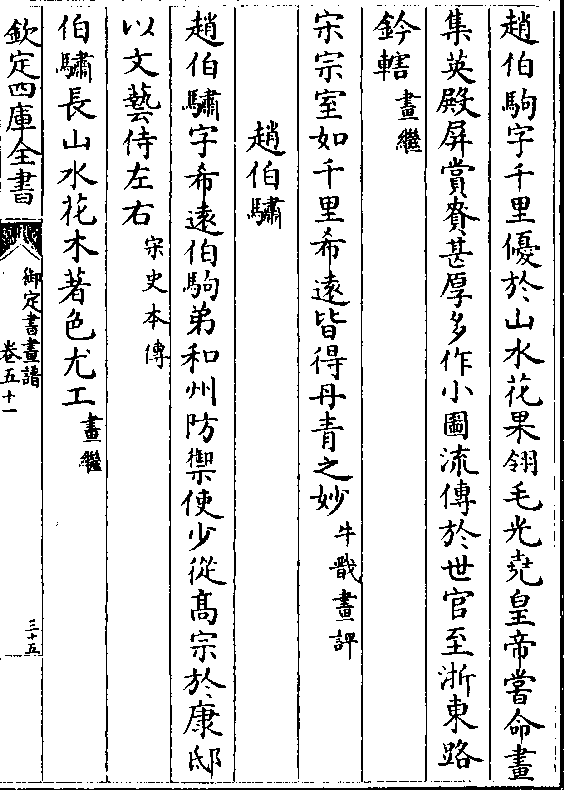 趙伯駒字千里優於山水花果翎毛光堯皇帝嘗命畫
集英殿屏賞賚甚厚多作小圖流傳於世官至浙東路
鈐轄畫繼
宋宗室如千里希遠皆得丹青之妙牛戩畫評
趙伯驌
趙伯驌字希遠伯駒弟和州防禦使少從髙宗於康邸
以文藝侍左右宋史本傳
伯驌長山水花木著色尤工畫繼
欽定四庫全書
御定書畫譜
卷五十一
三十五